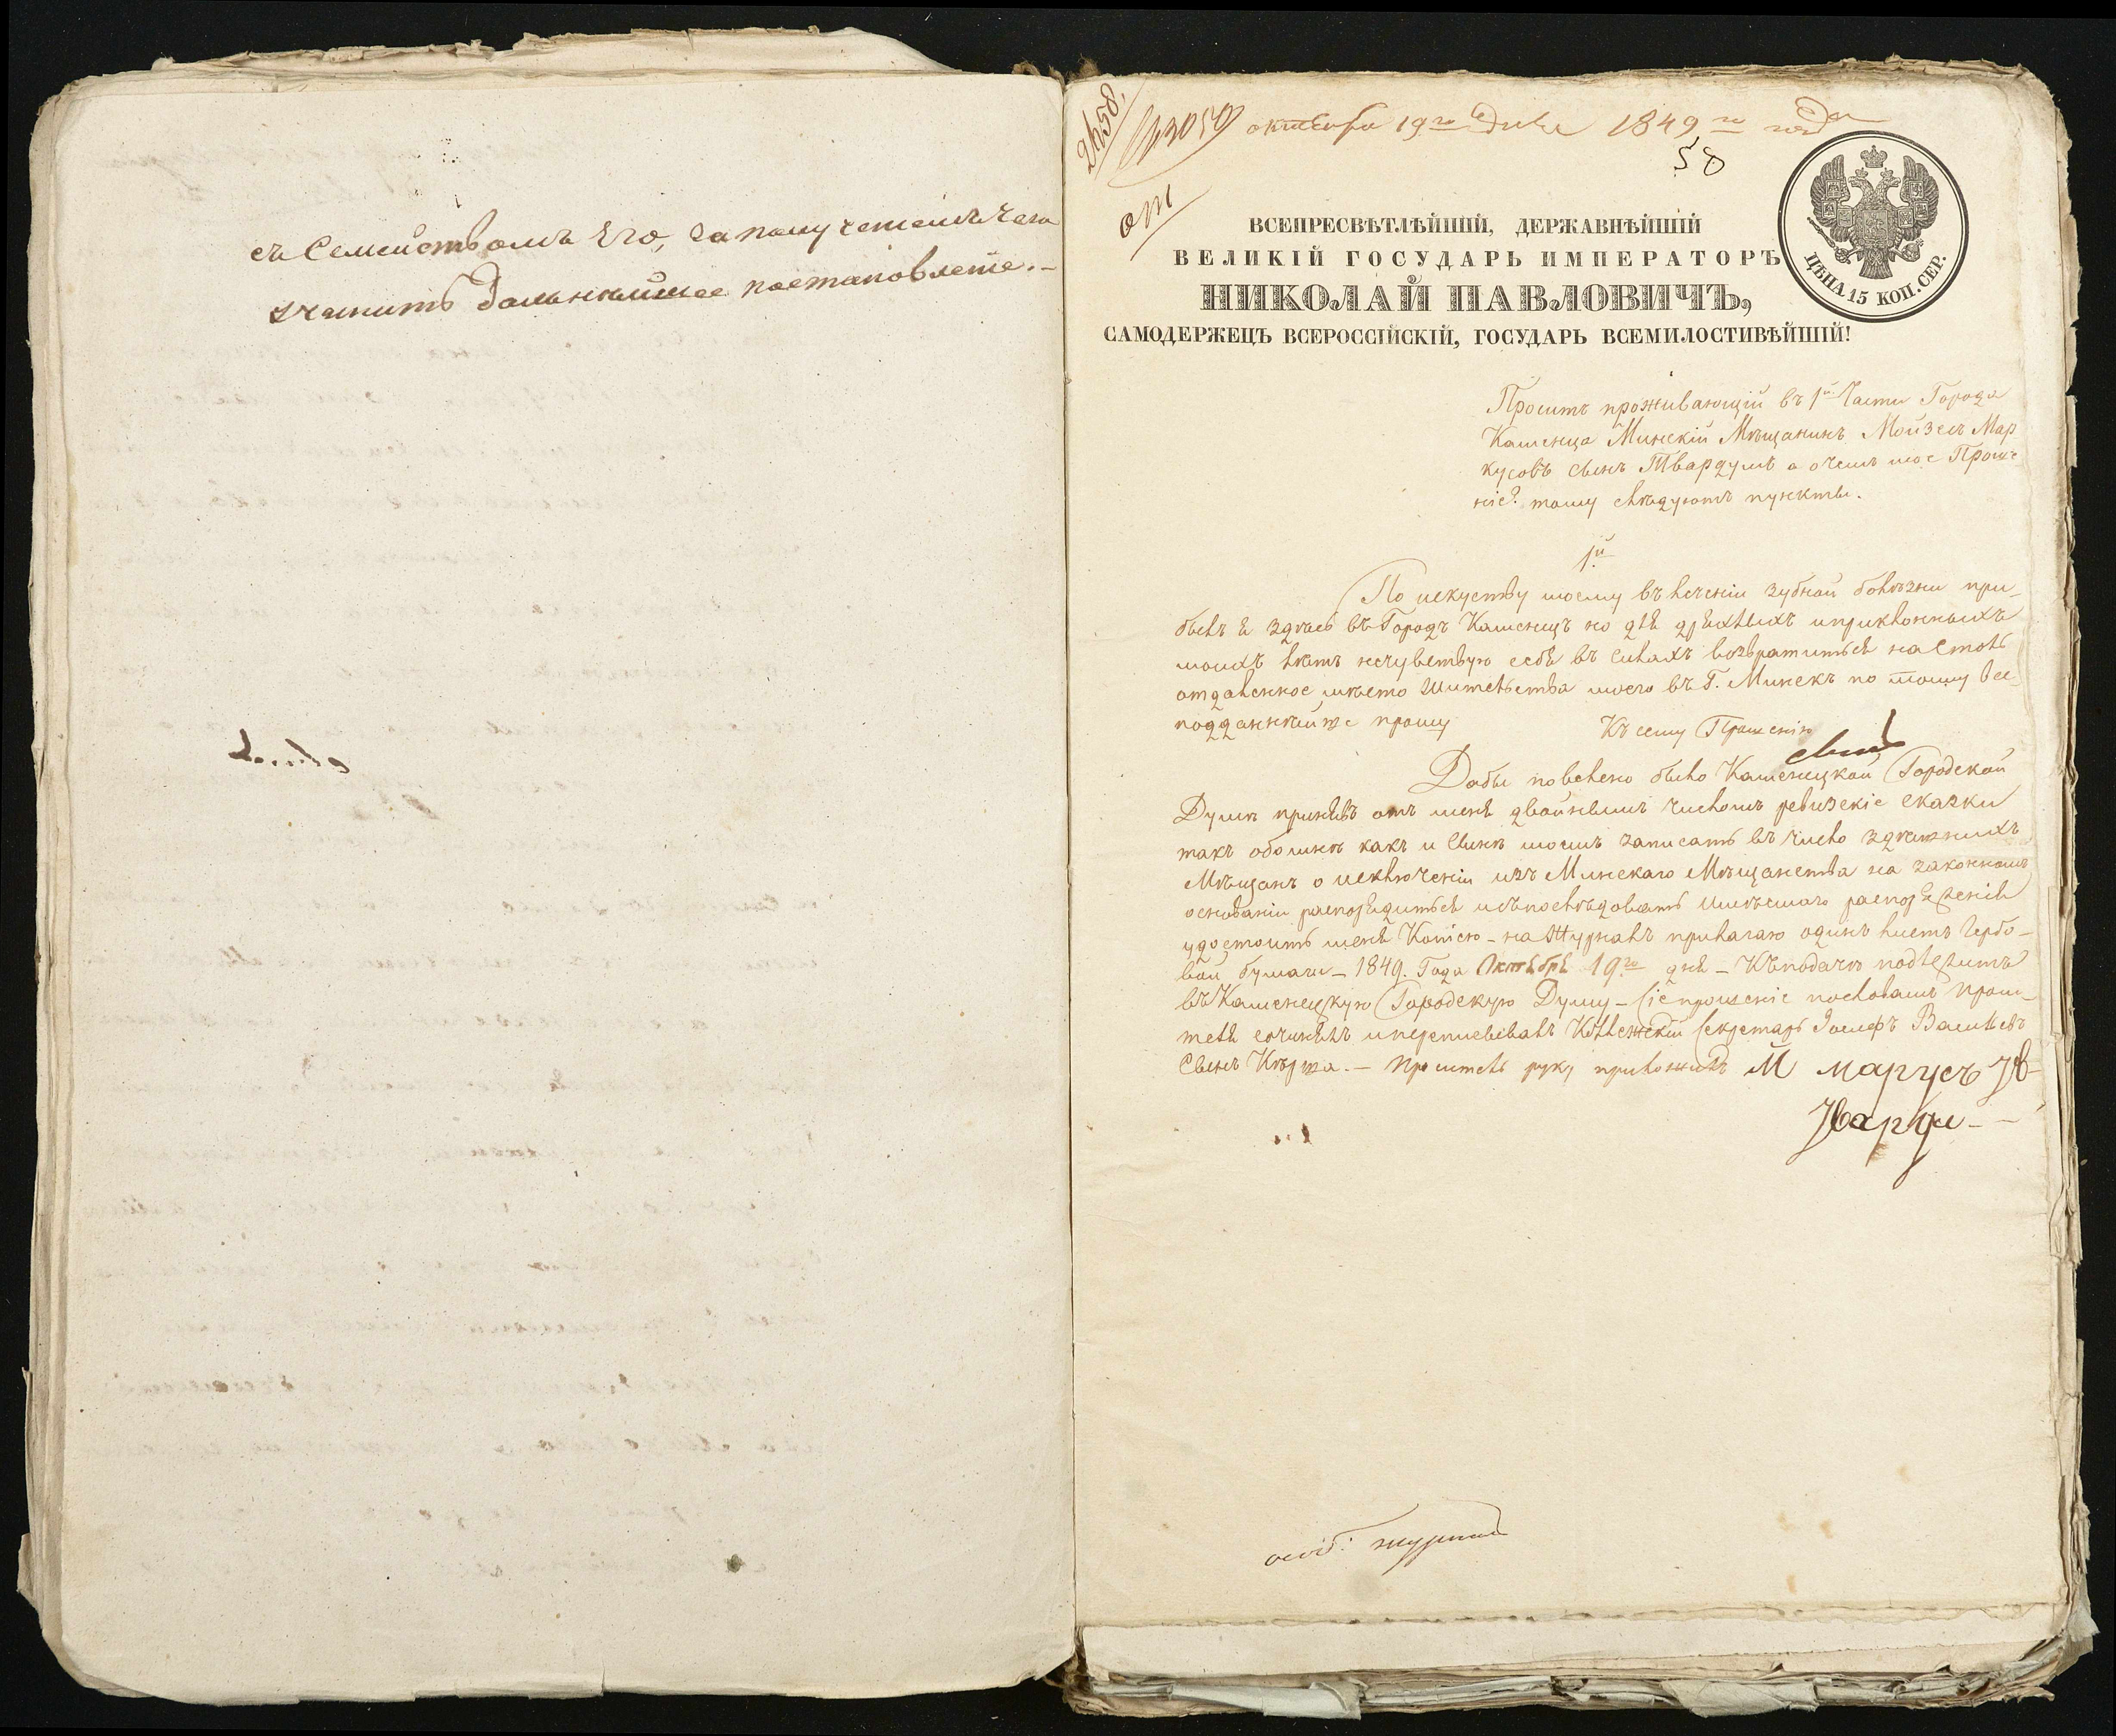 съ Семействомъ Его, за получениемъ чего
учинить дальнейшее постановление.–
октября 19го дня 1849го года
58
ЦѢНА 15 КОП. СЕР.
ВСЕПРЕСВѢТЛѢЙШІЙ, ДЕРЖАВНѢЙШІЙ
ВЕЛИКІЙ ГОСУДАРЬ ИМПЕРАТОРЪ
НИКОЛАЙ ПАВЛОВИЧЪ,
САМОДЕРЖЕЦЪ ВСЕРОССІЙСКІЙ, ГОСУДАРЬ ВСЕМИЛОСТИВѢЙШІЙ!
Проситъ проживающій въ 1й Части Города
Каменца Минскій Мѣщанинъ Мойзесъ Мар
кусовъ сынъ а о чемъ мое Проше
ніе? тому слѣдуютъ пункты.
1й
По искуству моему въ леченіи зубной болѣзни при–
былъ я здѣсь въ Городъ Каменецъ но для дряхлыхъ и приклонныхъ
моихъ лѣтъ нечувствую себя въ силахъ возвратиться на столь
отдаленное мѣсто жительства моего въ Г. Минскъ по тому все–
подданнѣйже прошу
Къ сему Прошенію
Дабы повелено было Каменецкой Городской
Думѣ принявъ отъ меня двойнымъ числомъ ревизскіе сказки
такъ обомнѣ какъ и Сынѣ моемъ записать въ число здѣшнихъ
Мѣщанъ о исключеніи изъ Минскаго Мѣщанства на законномъ
основаніи распорядиться и о послѣдовать имѣемаго распоряженія
удостоить меня Копіею – на Журналъ прилагаю одинъ листъ Гербо–
вой бумаги – 1849. Года Октября 19го дня – Къ подачѣ подлежитъ
въ Каменецкую Городскую Думу – Сіе прошеніе пословамъ проси–
теля сочинялъ и переписывалъ Коллежскій Секретарь Іосифъ Васильевъ
Сынъ – Проситель руку приложилъ М маркусъ
особ: журнал